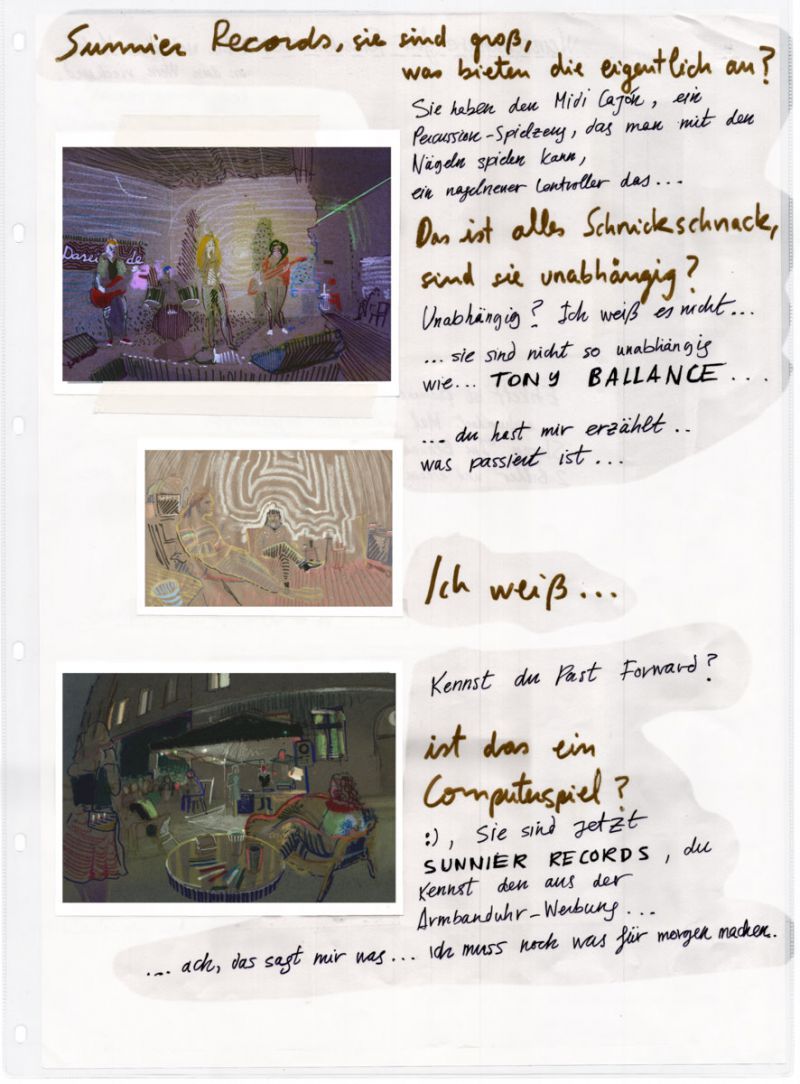 Sunnier Records, sie sind groß,
was bieten die eigentlich an?
Sie haben den Midi Cajón, ein
Percussion-Spielzeug, das man mit den
Nägeln spielen kann,
ein nagelneuer Controller das...
Das ist alles Schnickschnack,
sind sie unabhängig?
Unabhängig? Ich weiß es nicht...
...sie sind nicht so unabhängig
wie... TONY BALLANCE...
...du hast mir erzählt..
was passiert ist...
Ich weiß...
Kennst du Past Forward?
ist das ein
Computerspiel?
:), Sie sind jetzt
SUNNIER RECORDS, du
kennst den aus der
Armbanduhr-Werbung...
... ach, das sagt mir was... Ich muss noch was für morgen machen.